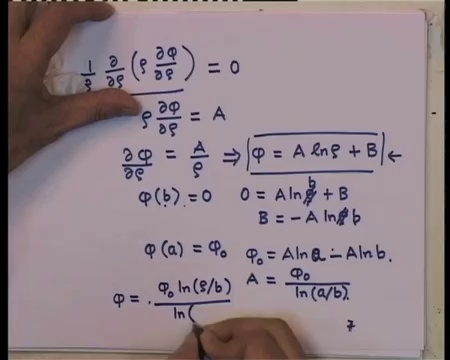 1/ρ ∂/∂ρ (ρ ∂φ/∂ρ) = 0
ρ ∂φ/∂ρ = A
∂φ/∂ρ = A/ρ ⇒ φ = A lnρ + B ←
φ(b) = 0 0 = A ln b + B
B = -A ln b
φ(a) = φ₀ φ₀ = A ln a - A ln b.
φ = φ₀ ln(ρ/b) / ln( A = φ₀ / ln(a/b).
7